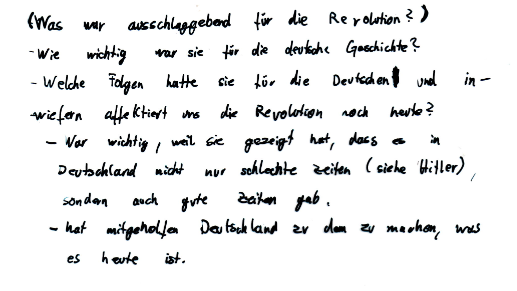 (Was war ausschlaggebend für die Revolution?)
-Wie wichtig war sie für die deutsche Geschichte?
- Welche Folgen hatte sie für die Deutschen und in-
-wiefern affektiert uns die Revolution noch heute?
- War wichtig, weil sie gezeigt hat, dass es in
Deutschland nicht nur schlechte Zeiten (siehe Hitler),
sondern auch gute Zeiten gab.
- hat mitgeholfen Deutschland zu dem zu machen, was
es heute ist.